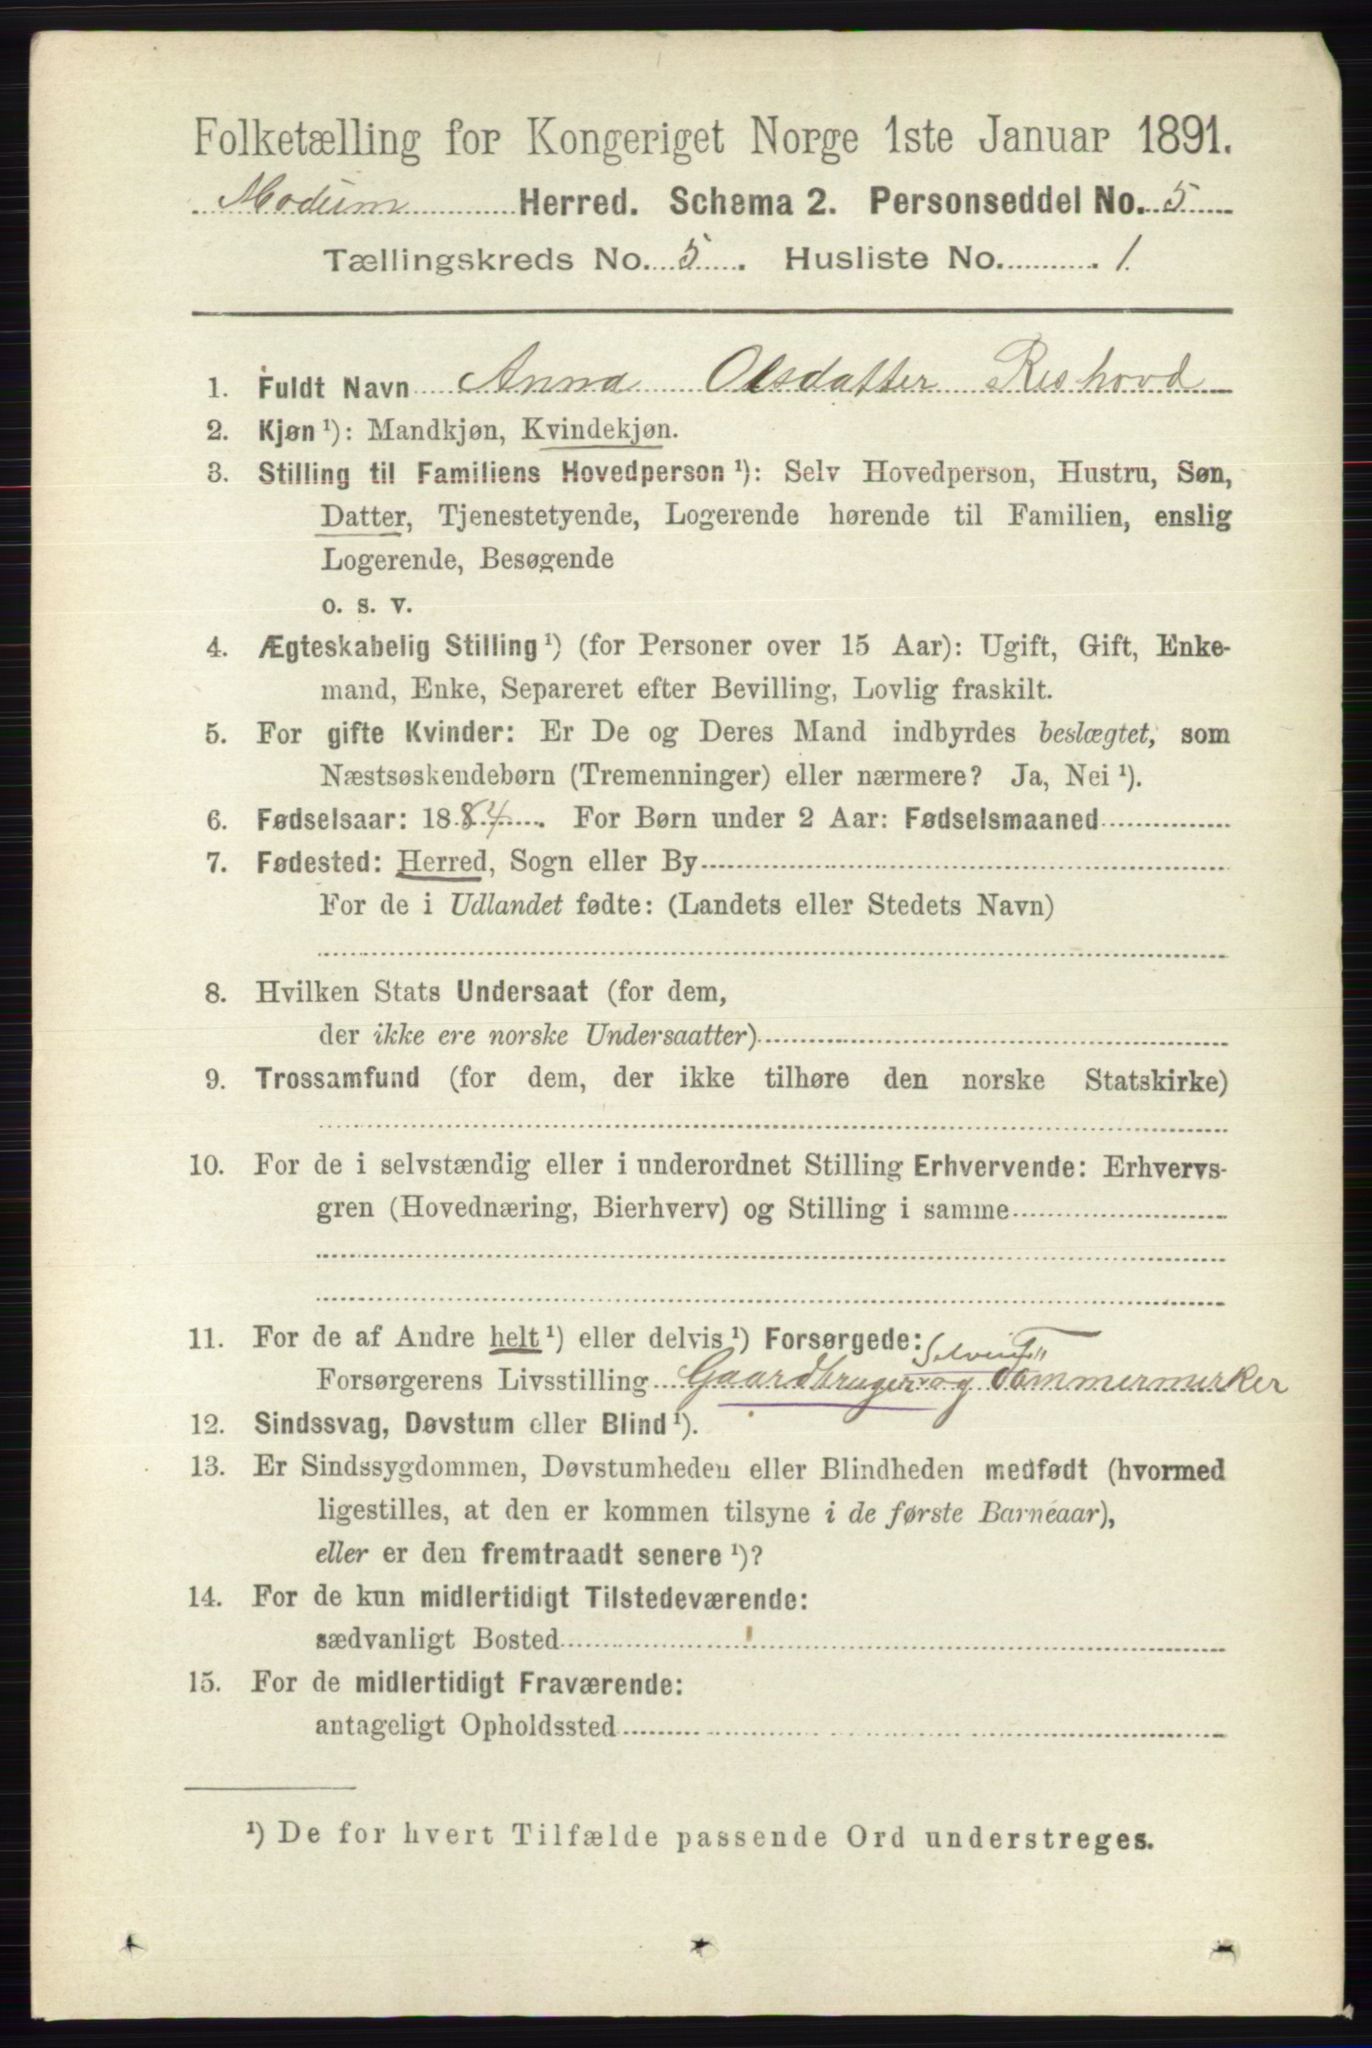 Folketælling for Kongeriget Norge 1ste Januar 1891.
Modum Herred. Schema 2. Personseddel No. 5
Tællingskreds No. 5. Husliste No. 1
1. Fuldt Navn Anna Olsdatter Reshovd
2. Kjøn ¹): Mandkjøn, Kvindekjøn.
3. Stilling til Familiens Hovedperson ¹): Selv Hovedperson, Hustru, Søn,
Datter, Tjenestetyende, Logerende hørende til Familien, enslig
Logerende, Besøgende
o. s. v.
4. Ægteskabelig Stilling ¹) (for Personer over 15 Aar): Ugift, Gift, Enke-
mand, Enke, Separeret efter Bevilling, Lovlig fraskilt.
5. For gifte Kvinder: Er De og Deres Mand indbyrdes beslægtet, som
Næstsøskendebørn (Tremenninger) eller nærmere? Ja, Nei ¹).
6. Fødselsaar: 1884. For Børn under 2 Aar: Fødselsmaaned
7. Fødested: Herred, Sogn eller By
For de i Udlandet fødte: (Landets eller Stedets Navn)
8. Hvilken Stats Undersaat (for dem,
der ikke ere norske Undersaatter)
9. Trossamfund (for dem, der ikke tilhøre den norske Statskirke)
10. For de i selvstændig eller i underordnet Stilling Erhvervende: Erhvervs-
gren (Hovednæring, Bierhverv) og Stilling i samme
11. For de af Andre helt ¹) eller delvis ¹) Forsørgede:
Selveier
Forsørgerens Livsstilling Gaardbruger og Tømmermerker
12. Sindssvag, Døvstum eller Blind ¹).
13. Er Sindssygdommen, Døvstumheden eller Blindheden medfødt (hvormed
ligestilles, at den er kommen tilsyne i de første Barneaar),
eller er den fremtraadt senere ¹)?
14. For de kun midlertidigt Tilstedeværende:
sædvanligt Bosted
15. For de midlertidigt Fraværende:
antageligt Opholdssted
¹) De for hvert Tilfælde passende Ord understreges.